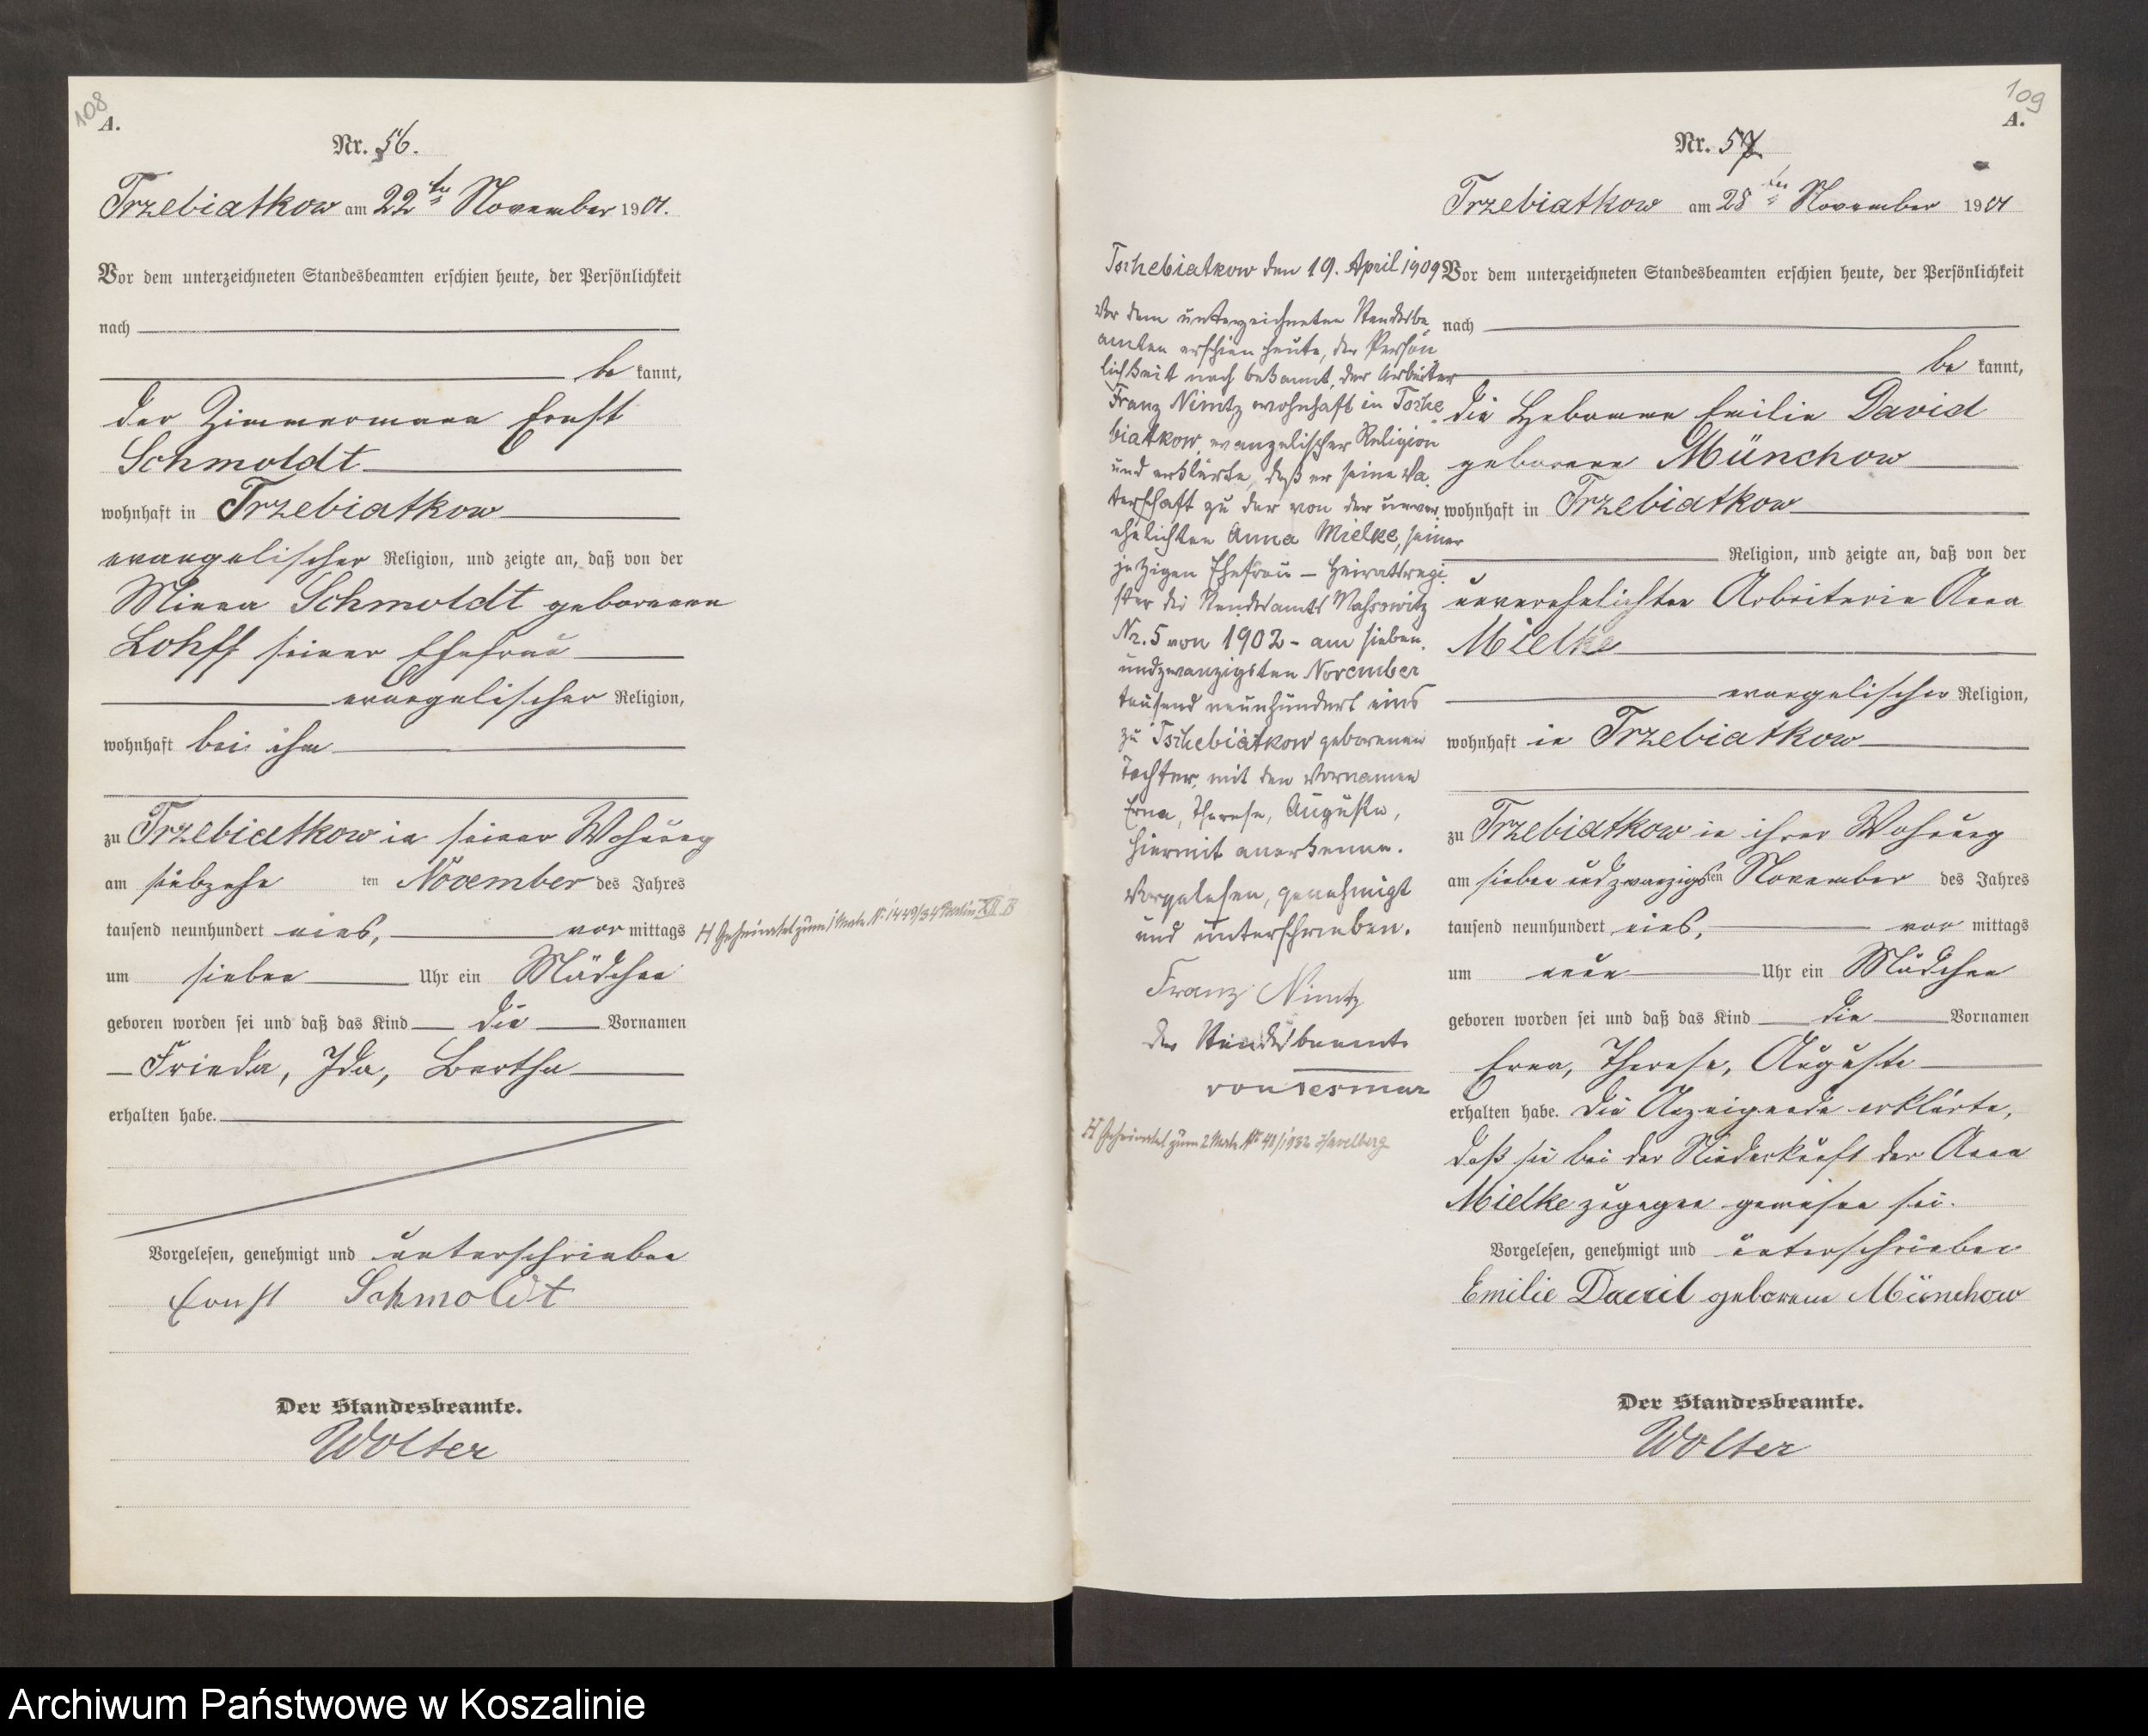 108
A.
Nr. 56.
Trzebiatkow am 22ten November 1901.
Vor dem unterzeichneten Standesbeamten erschien heute, der Persönlichkeit
nach
be kannt,
der Zimmermann Ernst
Schmoldt
wohnhaft in Trzebiatkow
evangelischer Religion, und zeigte an, daß von der
Minna Schmoldt geborenen
Lohff seiner Ehefrau
evangelischer Religion,
wohnhaft bei ihm
zu Trzebiatkow in seiner Wohnung
am siebzehn ten November des Jahres
tausend neunhundert eins, vor mittags
um sieben Uhr ein Mädchen
geboren worden sei und daß das Kind die Vornamen
Frieda, Ida, Bertha
erhalten habe.
Vorgelesen, genehmigt und unterschrieben
Ernst Schmoldt
Der Standesbeamte.
Wolter
H Geheiratet zum 1 Male Nr. 1449/34 Berlin XII B
109
A.
Nr. 57
Trzebiatkow am 28ten November 1901
Vor dem unterzeichneten Standesbeamten erschien heute, der Persönlichkeit
nach
be kannt,
die Hebamme Emilie David
geborene Münchow
wohnhaft in Trzebiatkow
Religion, und zeigte an, daß von der
unverehelichten Arbeiterin Anna
Mielke
evangelischer Religion,
wohnhaft in Trzebiatkow
zu Trzebiatkow in ihrer Wohnung
am sieben und zwanzigsten November des Jahres
tausend neunhundert eins, vor mittags
um neun Uhr ein Mädchen
geboren worden sei und daß das Kind die Vornamen
Erna, Therese, Auguste
erhalten habe. Die Anzeigende erklärte,
daß sie bei der Niederkunft der Anna
Mielke zugegen gewesen sei.
Vorgelesen, genehmigt und unterschrieben
Emilie David geborene Münchow
Der Standesbeamte.
Wolter
Tschebiatkow den 19. April 1909
Vor dem unterzeichneten Standesbe
amten erschien heute, der Persön
lichkeit nach bekannt, der Arbeiter
Franz Nimtz wohnhaft in Tsche
biatkow, evangelischer Religion
und erklärte, daß er seine Va
terschaft zu der von der unver
ehelichten Anna Mielke, seiner
jetzigen Ehefrau – Heiratsregi
ster des Standesamts
Nr. 5 von 1902 – am sieben
undzwanzigsten November
tausend neunhundert eins
zu Tschebiatkow geborenen
Tochter, mit den Vornamen
Erna, Therese, Auguste,
hiermit anerkenne.
Vorgelesen, genehmigt
und unterschrieben.
Franz Nimtz
Der Standesbeamte
von Tesmar
H Geheiratet zum 2 Male Nr 40/1932 Havelberg
Archiwum Państwowe w Koszalinie